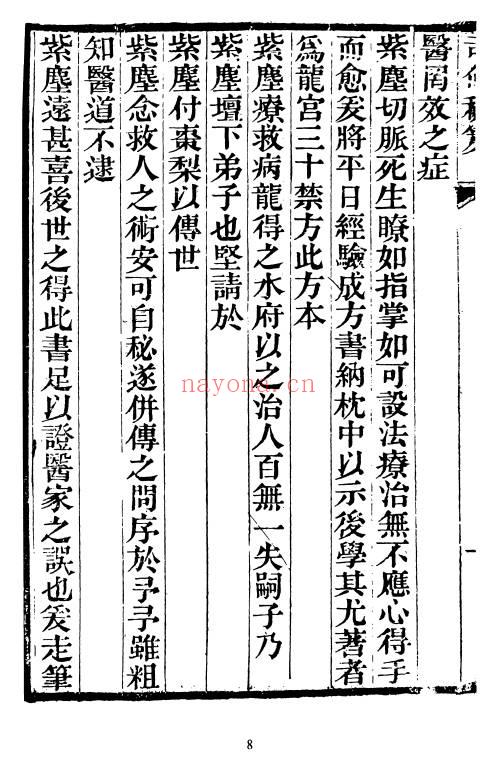 醫罔效之症
紫塵切脈死生瞭如指掌如可設法療治無不應心得手
而愈爰將平日經驗成方書納枕中以示後學其尤著者
爲龍宮三十禁方此方本
紫塵療救病龍得之水府以之治人百無一失嗣子乃
紫塵壇下弟子也堅請於
紫塵付棗梨以傳世
紫塵念救人之術安可自秘遂併傳之問序於予予雖粗
知醫道不逮
紫塵遠甚喜後世之得此書足以證醫家之誤也爰走筆
nayona.cn
8